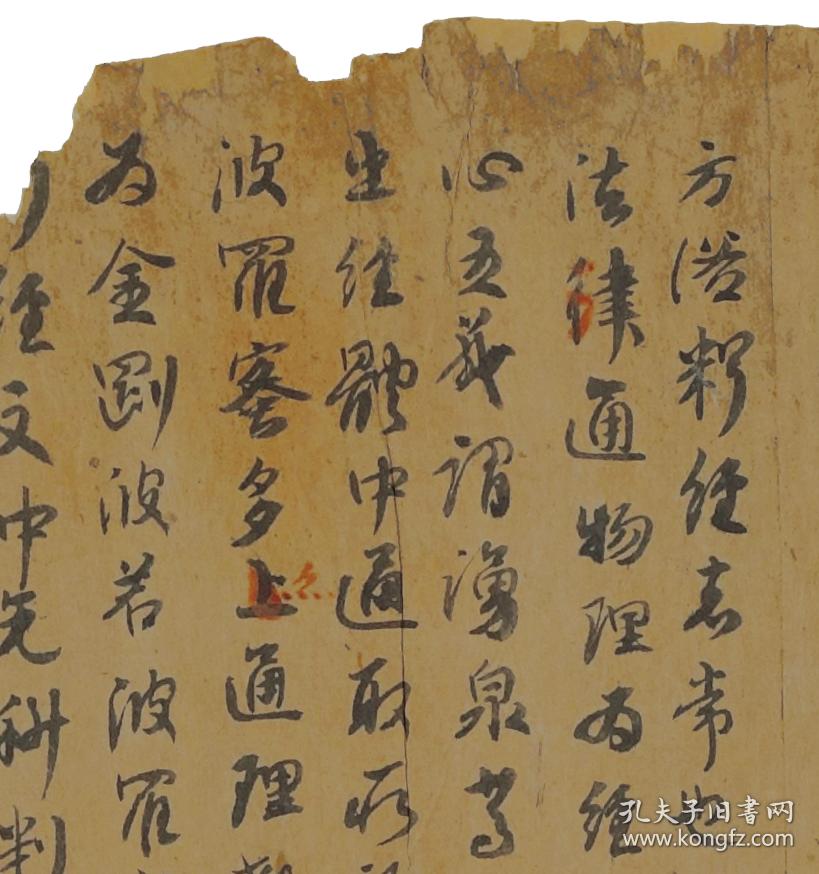 方俗釋經者常也
法律通物理為經
心五義謂湧泉等
出經體中通取所
波羅蜜多上通理
為金剛波若波羅
經文中先科判
孔夫子旧书网
www.kongfz.com